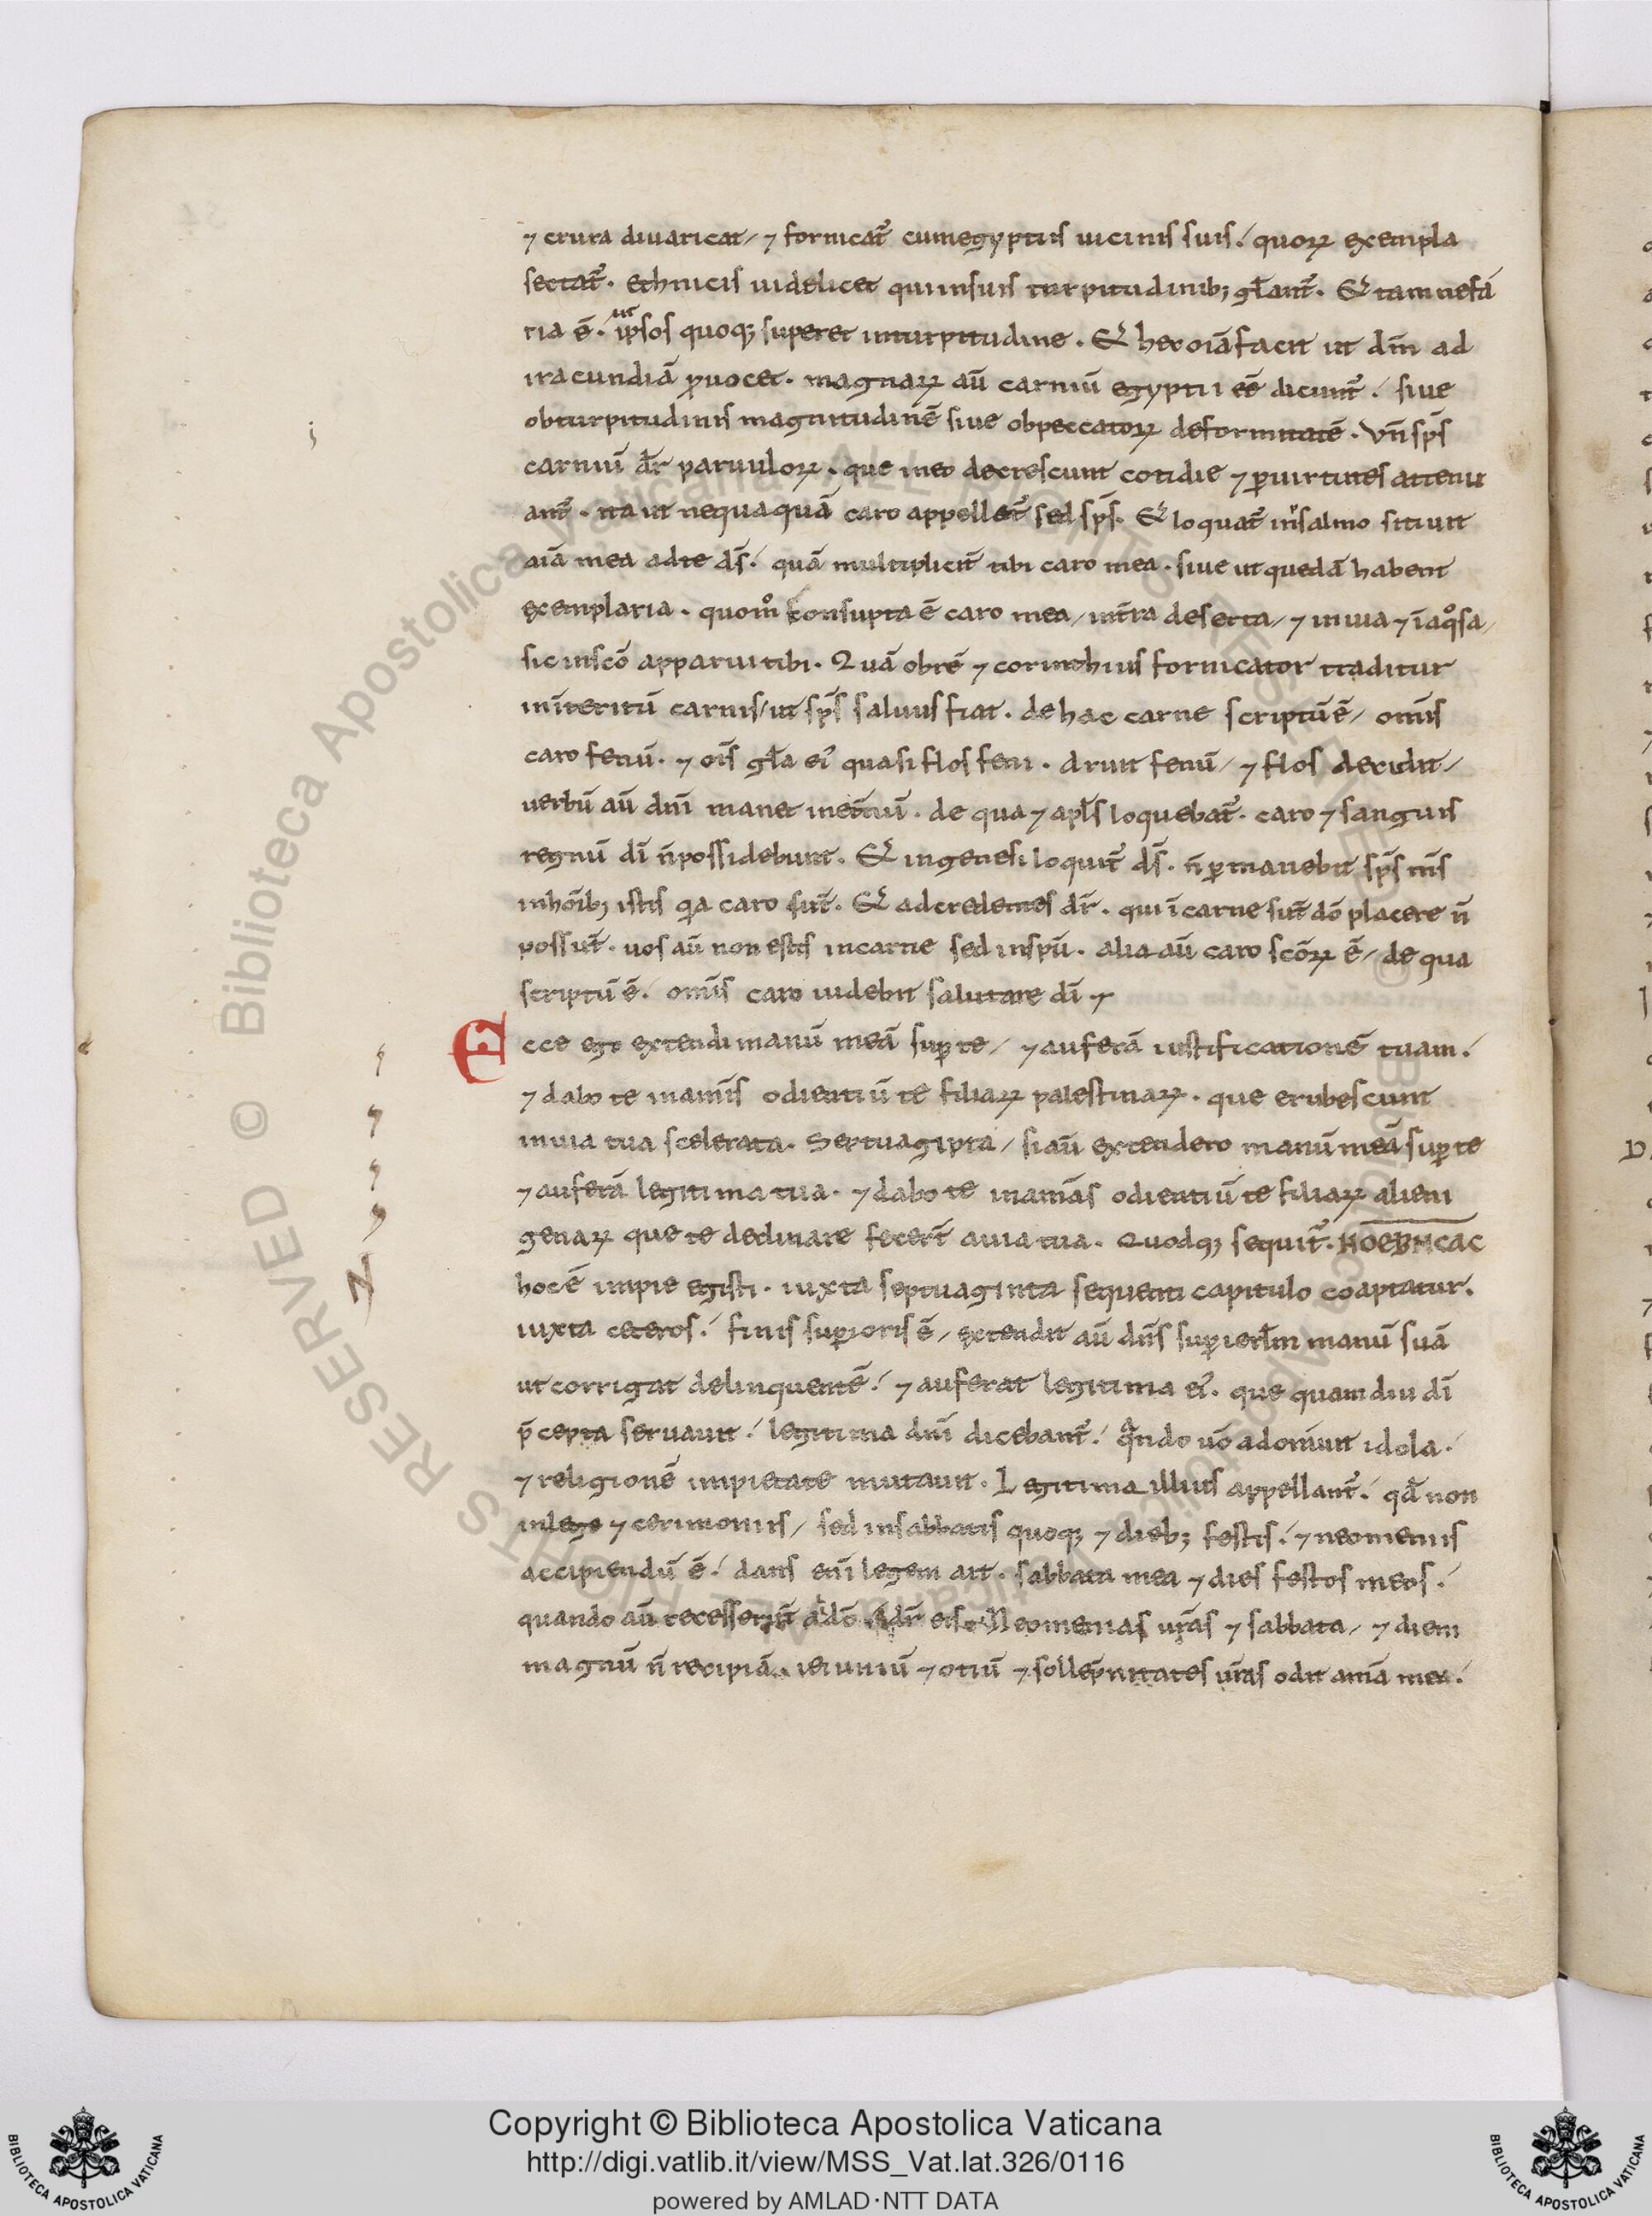 ⁊ crura diuaricat / ⁊ fornicat᷑ cumegyptiis uicinis suis. quoꝝ exempla
sectat᷑. ethnicis uidelicet quiinsuis turpitudinib; gl̄ant᷑. Et tam nefā
ria ē. ut ip̄sos quoq; superet inturpitudine. Et hec oīa facit ut dn̄m ad
iracundiā ꝓuocet. magnaꝝ aū carniū egyptii eē dicunt᷑. siue
obturpitudinis magnitudinē siue obpeccatoꝝ deformitatē. Vn̄ sp̄s
carniū dr̄ paruuloꝝ. que in eo decrescunt cotidie ⁊ ꝑuirtutes attenu
ant᷑. ita ut nequaquā caro appellet᷑ sed sp̄s. Et loquat᷑ inpsalmo sitiuit
aīa mea adte ds̄. quā multiplicit᷑ tibi caro mea. siue ut quedā habent
exemplaria. quom̊ consupta ē caro mea / int̄ra deserta / ⁊ inuia ⁊ īaq̊sa /
sic insc̄o apparui tibi. Quā obrē ⁊ corinthius fornicator traditur
inīteritū carnis / ut sp̄s saluus fiat. de hac carne scriptū ē / omīs
caro fenū. ⁊ oīs gl̄a ei᷒ quasi flos feni. aruit fenū / ⁊ flos decidit /
uerbū aū dn̄i manet inet̄nū. de qua ⁊ apl̄s loquebat᷑. caro ⁊ sanguis
regnū dī n̄ possidebunt. Et ingenesi loquit᷑ ds̄. n̄ ꝑmanebit sp̄s m̄s
inhōib; istis qa caro sūt. Et adcredentes dr̄. qui ī carne sūt dō placere n̄
possūt. uos aū non estis incarne sed inspū. alia aū caro scōꝝ ē / de qua
scriptū ē. omīs caro uidebit salutare dī ⁊
Ecce ego extendi manū meā suꝑ te / ⁊ auferā iustificationē tuam.
⁊ dabo te inanīs odientiū te filiaꝝ palestinaꝝ. que erubescunt
inuia tua scelerata. Septuaginta / siaū extendero manū meā suꝑ te
⁊ auferā legitima tua. ⁊ dabo te inanīas odientiū te filiaꝝ alieni
genaꝝ que te declinare fecert̄ auia tua. Quodq; sequit᷑. HCEBHCAC
hoc ē impie egisti. iuxta septuaginta sequenti capitulo coaptatur.
iuxta ceteros. finis suꝑioris ē / extendit aū dn̄s suꝑ ierl̄m manū suā
ut corrigat delinquentē. ⁊ auferat legitima ei᷒. que quamdiu dī
p̄cepta seruauit. legitima dn̄i dicebant᷑. qando uō adoniuit idola.
⁊ religionē impietate mutauit. Legitima illius appellant᷑. qd̄ non
inlege ⁊ cerimoniis / sed insabbatis quoq; ⁊ dieb; festis. ⁊ neomeniis
accipiendū ē. dans enī legem ait. sabbata mea ⁊ dies festos meos.
quando aū recesserint adō dr̄ eis. Neomenias ur̄as ⁊ sabbata / ⁊ diem
magnū n̄ recipiā. ieiuniū ⁊ otiū ⁊ sollēpnitates ur̄as odit anīa mea.
RESERVED © Biblioteca Apostolica Vaticana ALL RIGHTS RESERVED © Biblioteca Apostolica Vaticana ALL RIGHTS
Copyright © Biblioteca Apostolica Vaticana
http://digi.vatlib.it/view/MSS_Vat.lat.326/0116
powered by AMLAD·NTT DATA
BIBLIOTECA APOSTOLICA VATICANA
BIBLIOTECA APOSTOLICA VATICANA